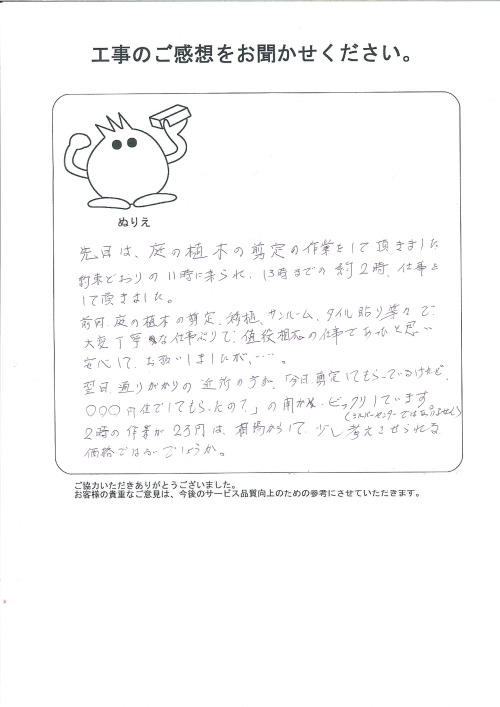 工事のご感想をお聞かせください。
ぬりえ
先日は、庭の植木の剪定の作業をして頂きました
約束どおりの11時に来られ、13時までの約2時、仕事を
して頂きました。
前回、庭の植木の剪定、移植、サンルーム、タイル貼り等々で、
大変丁寧な仕事ぶりで、値段相応の仕事であったと思い
安心して、お願いしましたが、…。
翌日、通りがかりの近所の方が、「今日剪定してもらっているけれど、
〇〇〇円位でしてもらったの?」の 、ビックリしています
(シルバーセンターではありません)
2時の作業が2.3万円は、相場からして、少し考えさせられる
価格ではないでしょうか。
ご協力いただきありがとうございました。
お客様の貴重なご意見は、今後のサービス品質向上のための参考にさせていただきます。